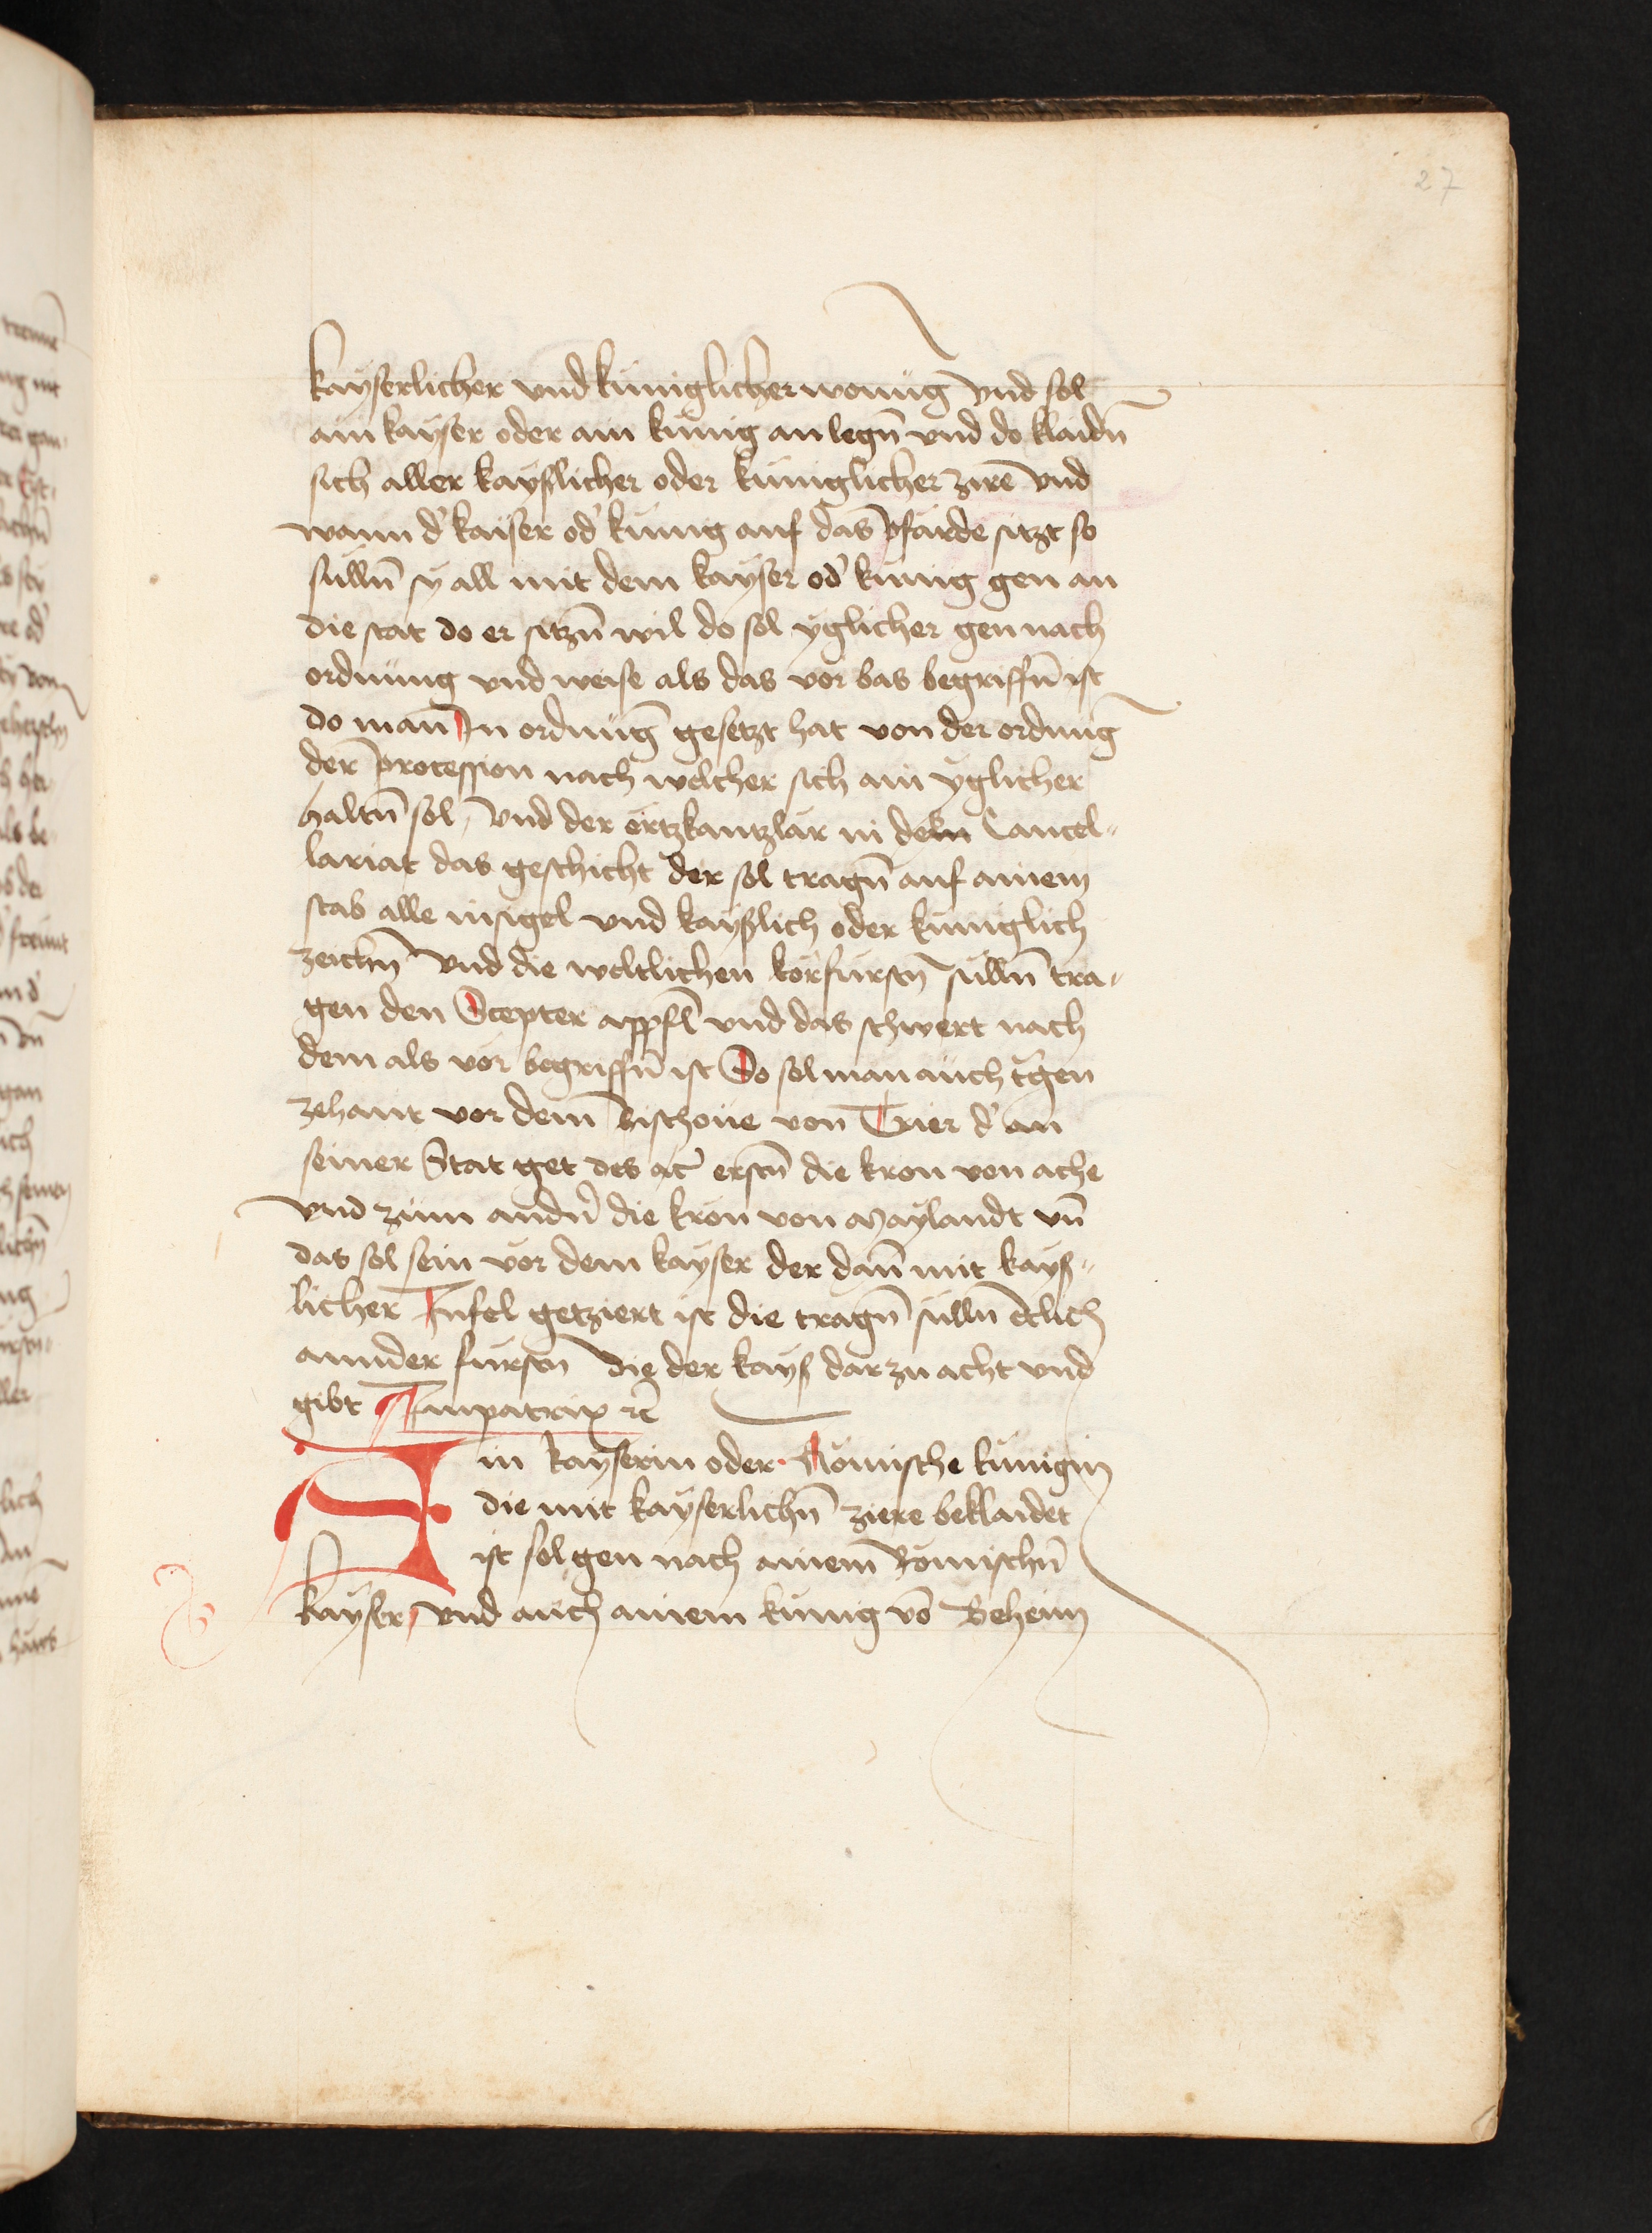 27
kayserlicher vnd kuniglicher wonūg vnd sol
ain kayser oder ain kunig an legn̄ vnd do klaidn̄
sich aller kayslicher oder kuniglicher zirē vnd
wann d' kaiser od' kunig auf das pfärde sitzt so
sulln̄ sy all mit dem kayser od' kunig gen an
die stat do er sitzn̄ wil do sol yglicher gen nach
ordnung vnd weise als das vor bas begriffn̄ ist
do man In ordnūg gesetzt hat von der ordnūg
der procession nach welcher sich ain yglicher
haltn̄ sol, Vnd der ertzkantzlar in dem Cancel-
lariat das geschicht der sol tragn̄ auf ainem
stab alle insigel vnd kayslich oder kuniglich
zeichn̄ Vnd die weltlichen korfursn̄ sulln̄ tra-
gen den Scepter appfl̄ vnd das schwert nach
dem als vor begriffn̄ ist So sol man auch tgen
zehant vor dem Bischoue von Trier d' an
seiner Stat get des ac' erstn̄ die kron von ache
vnd zum andn̄ die kron von Maylandt vn̄
das sol sein vor dem kayser der dan̄ mit kays-
licher Infel getziert ist die tragn̄ sulln̄ etlich
annder fursn̄ die der kays dar zu acht vnd
gibt Inpatrix rc̄
Ain kayserin oder Römische kunigin
die mit kayserlichn̄ ziere beklaidet
ist sol gen nach ainem Römischn̄
kayser, vnd auch ainem kunig vō Beheim